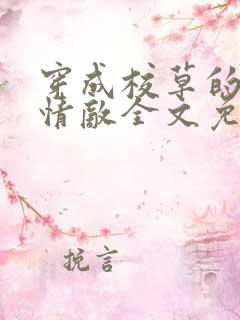 穿成校草的
情敌全文免
挽言